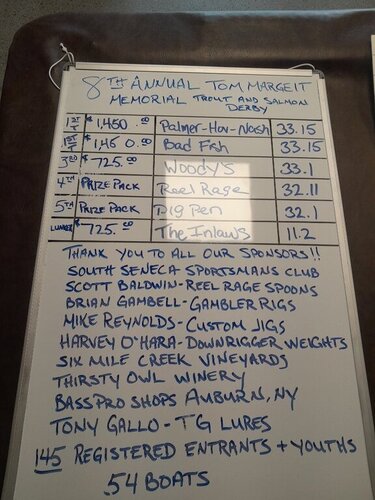 8TH ANNUAL TOM MARGEIT
MEMORIAL TROUT AND SALMON
DERBY
1ST T $1,450.00 Palmer-Hov-Nash 33.15
1ST T $1,450.00 Bad Fish 33.15
3RD $725.00 Woody's 33.1
4TH PRIZE PACK Reel Rage 32.11
5TH PRIZE PACK Pig Pen 32.1
LUNKER $725.00 The Inlaws 11.2
THANK YOU TO ALL OUR SPONSORS!!
SOUTH SENECA SPORTSMANS CLUB
SCOTT BALDWIN-REEL RAGE SPOONS
BRIAN GAMBELL-GAMBLER RIGS
MIKE REYNOLDS-CUSTOM JIGS
HARVEY O'HARA-DOWNRIGGER WEIGHTS
SIX MILE CREEK VINEYARDS
THIRSTY OWL WINERY
BASS PRO SHOPS AUBURN, NY
TONY GALLO-TG LURES
145 REGISTERED ENTRANTS + YOUTHS
54 BOATS